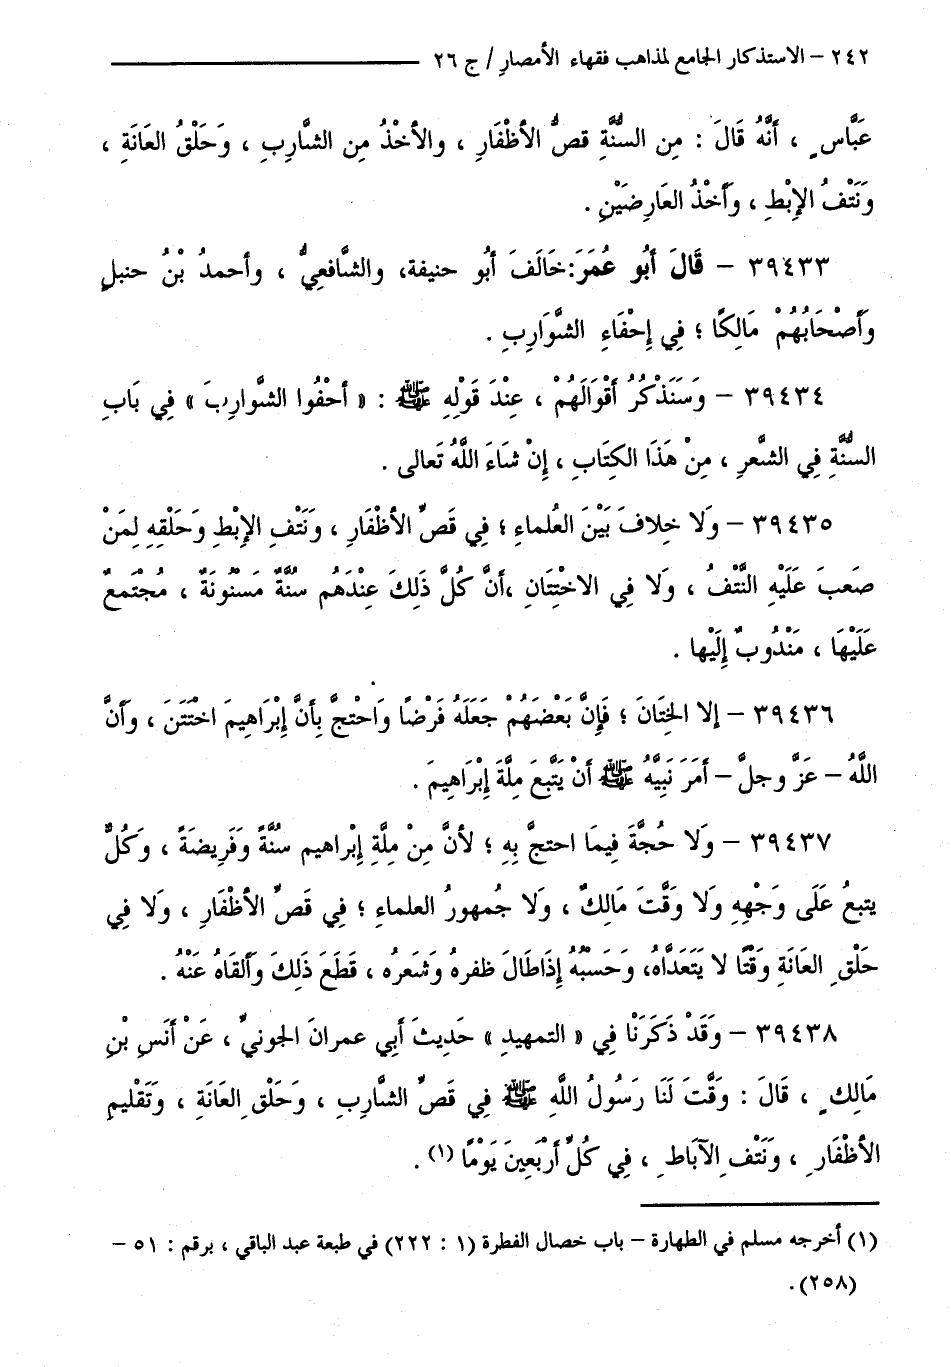 ٢٤٢ – الاستذكار الجامع لمذاهب فقهاء الأمصار / ج ٢٦
عَبَّاسٍ ، أَنَّهُ قَالَ : مِن السُّنَّةِ قصُّ الأظْفَارِ ، والأخْذُ مِن الشَّارِبِ ، وَحَلْقُ العَانَةِ ،
وَنَتْفُ الإِبْطِ ، وَأَخْذُ العَارِضَيْنِ .
٣٩٤٣٣ – قَالَ أَبُو عُمَرَ:خَالَفَ أبُو حنيفة، والشَّافعِيُّ ، وأحمدُ بْنُ حنبلٍ
وَأَصْحَابُهُمْ مَالِكًا ؛ فِي إِحْفَاءِ الشَّوَارِبِ .
٣٩٤٣٤ – وَسَنَذْكُرُ أَقْوَالَهُمْ ، عِنْدَ قَوْلِهِ ﷺ : « أحْفُوا الشَّوارِبَ » فِي بَابِ
السُّنَّةِ فِي الشَّعرِ ، مِنْ هَذَا الكِتَابِ ، إِنْ شَاءَ اللَّهُ تَعالى .
٣٩٤٣٥ – وَلا خِلافَ بَيْنَ العُلماءِ ؛ فِي قَصِّ الأظْفَارِ ، وَنَتْفِ الإِبْطِ وَحَلْقِهِ لِمَنْ
صَعبَ عَلَيْهِ النَّتْفُ ، وَلا فِي الاخْتِتَانِ ،أَنَّ كُلَّ ذَلِكَ عِنْدَهُم سُنَّةٌ مَسْنُونَةٌ ، مُجْتَمعٌ
عَلَيْهَا ، مَنْدُوبٌ إِلَيْها .
٣٩٤٣٦ – إلا الخِتَانَ ؛ فَإِنَّ بَعْضَهُمْ جَعَلَهُ فَرْضًا وَاحْتجَّ بِأَنَّ إِبْرَاهِيمَ اخْتَتَنَ ، وَأَنَّ
اللَّهُ – عَزَّ وجلَّ – أمَرَ نَبِيَّهُ ﷺ أَنْ يَتَّبعَ مِلَّةَ إِبْرَاهِيمَ .
٣٩٤٣٧ – وَلا حُجَّةَ فِيمَا احتجَّ بِهِ ؛ لأنَّ مِنْ مِلَّةِ إِبْراهِيم سنَّةً وَفَرِيضَةً ، وَكُلٌّ
يتبعُ عَلَى وَجْهِهِ وَلا وَقَّتَ مَالِكٌ ، وَلا جُمهورُ العلماءِ ؛ فِي قَصِّ الأظْفَارِ ، وَلا فِي
حَلْقِ العَانَةِ وَقْتًا لا يَتَعَدَّاهُ، وَحَسْبُهُ إِذَاطَالَ ظفرهُ وَشَعرُه ، قَطَعَ ذَلِكَ وَأَلقَاهُ عَنْهُ .
٣٩٤٣٨ – وَقَدْ ذَكَرَنْا فِي « التمهيدِ » حَدِيثَ أَبِي عمرانَ الجونيِّ ، عَنْ أَنَسِ بْنِ
مَالِكٍ ، قَالَ : وَقَّتَ لَنَا رَسُولُ اللَّهِ ﷺ فِي قَصِّ الشَّارِبِ ، وَحَلْقِ العَانَةِ ، وَتَقْلِيمِ
الأظْفَارِ ، وَنَتْفِ الآبَاطِ ، فِي كُلِّ أَرْبَعِينَ يَوْمًا (١) .
(١) أخرجه مسلم في الطهارة – باب خصال الفطرة (١ : ٢٢٢) في طبعة عبد الباقي ، برقم : ٥١ –
(٢٥٨).